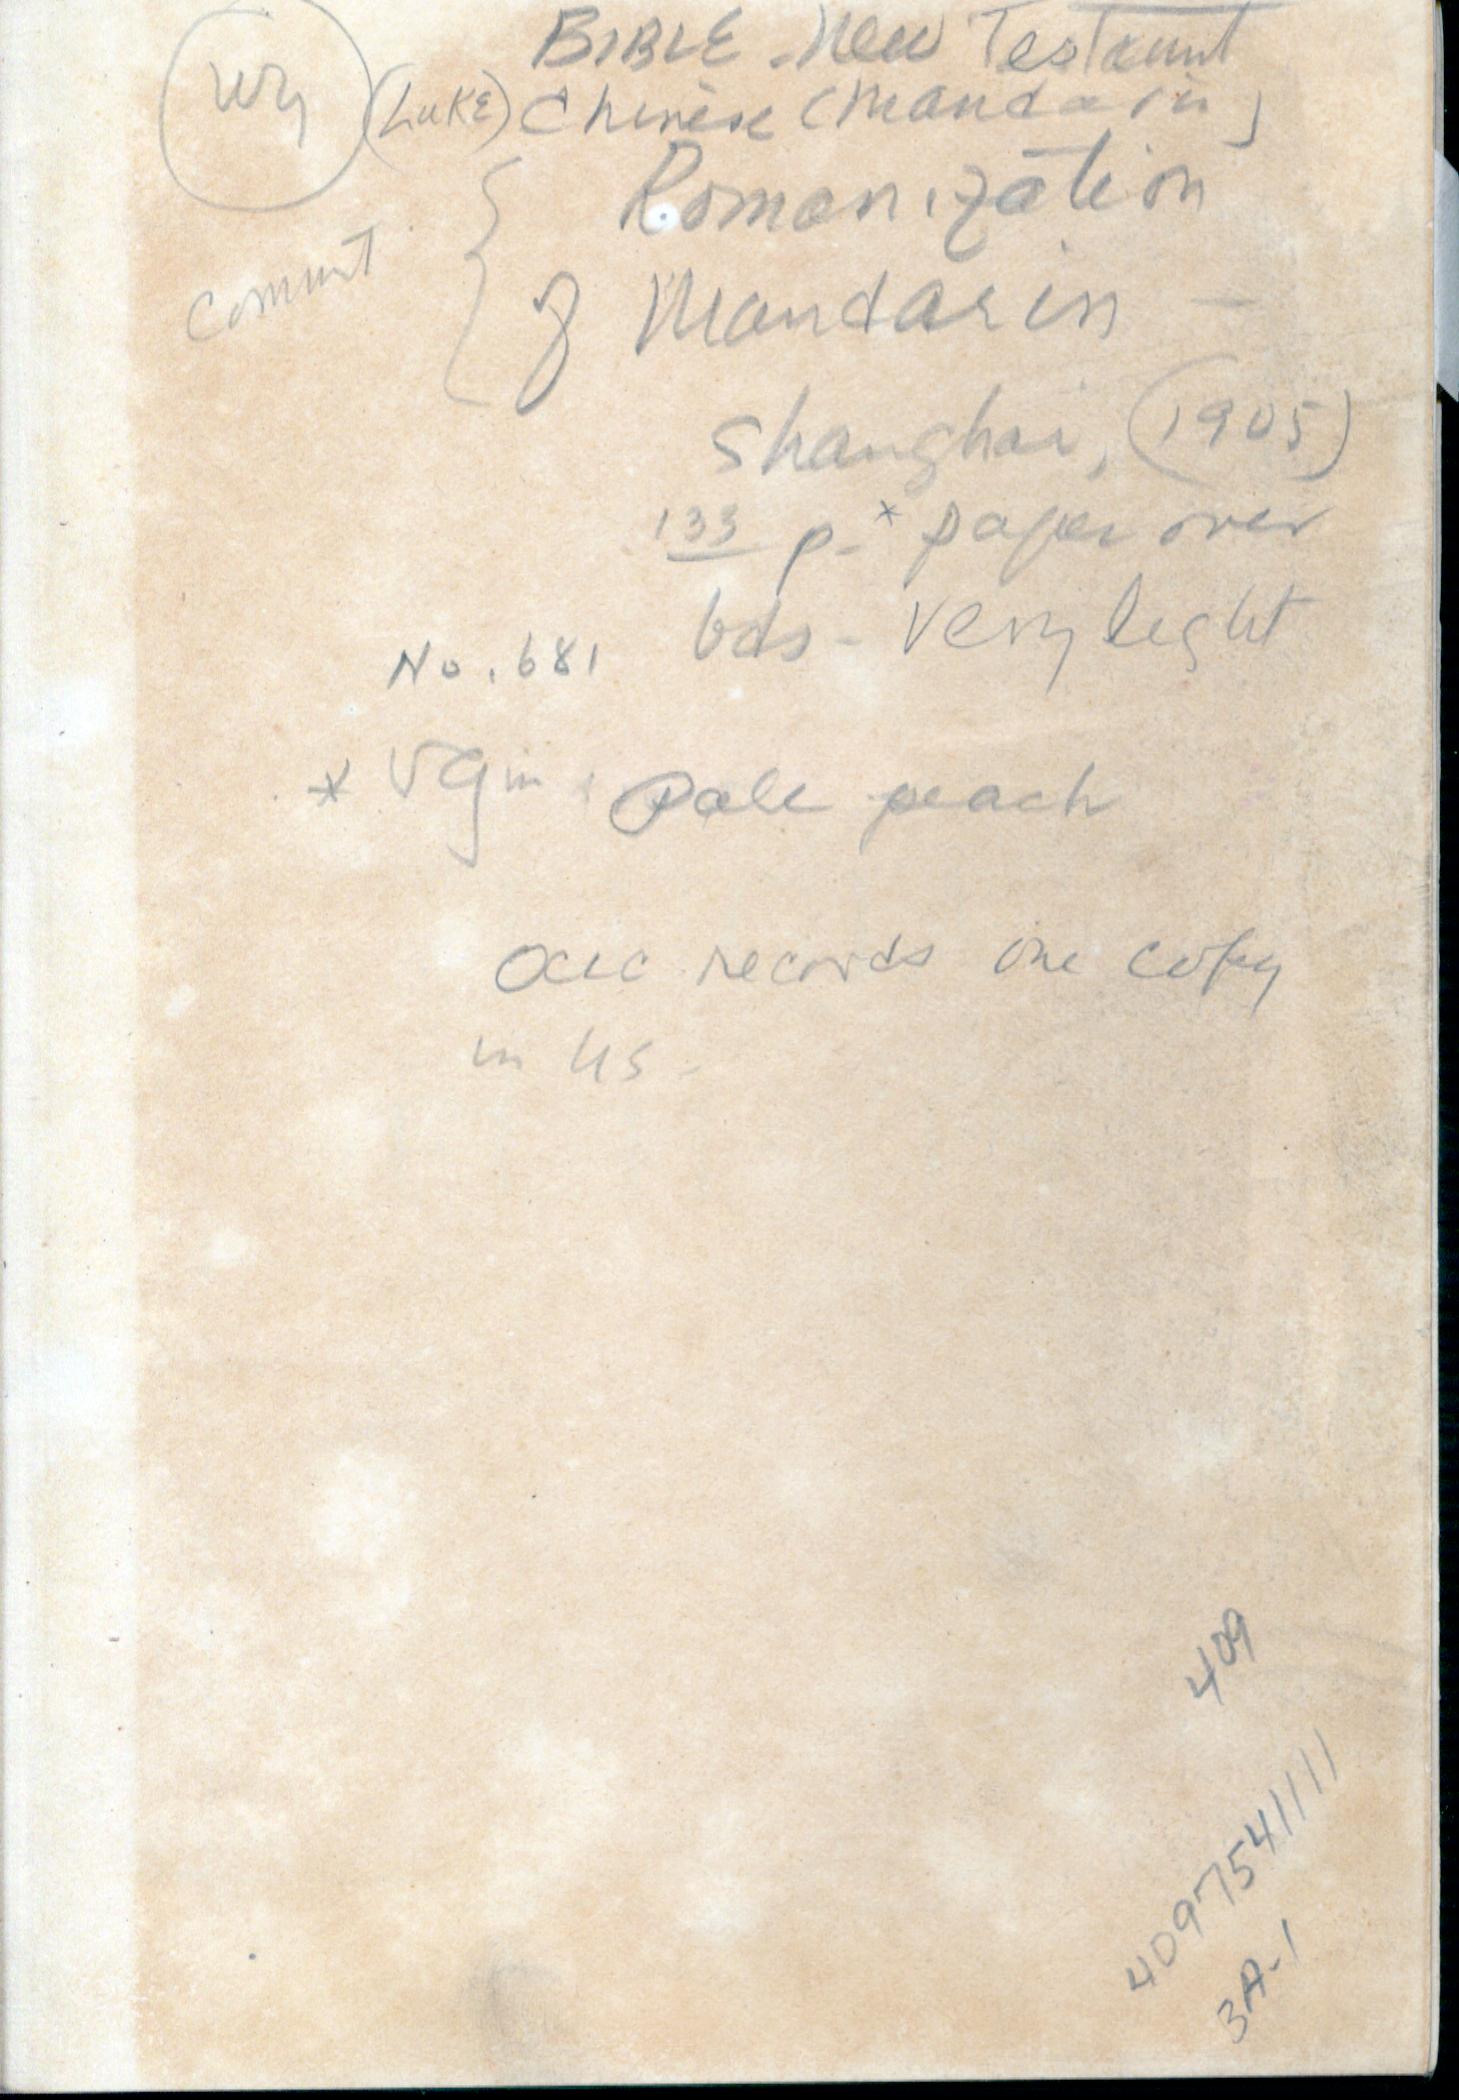 BIBLE - New Testament
(LUKE) Chinese (Mandarin)
Romanization
Comment
of Mandarin -
Shanghai, (1905)
133 p. * paper over
bds - Very light
No. 681
* Pale peach
OCLC records one copy
in US -
409
40975411111
3A-1